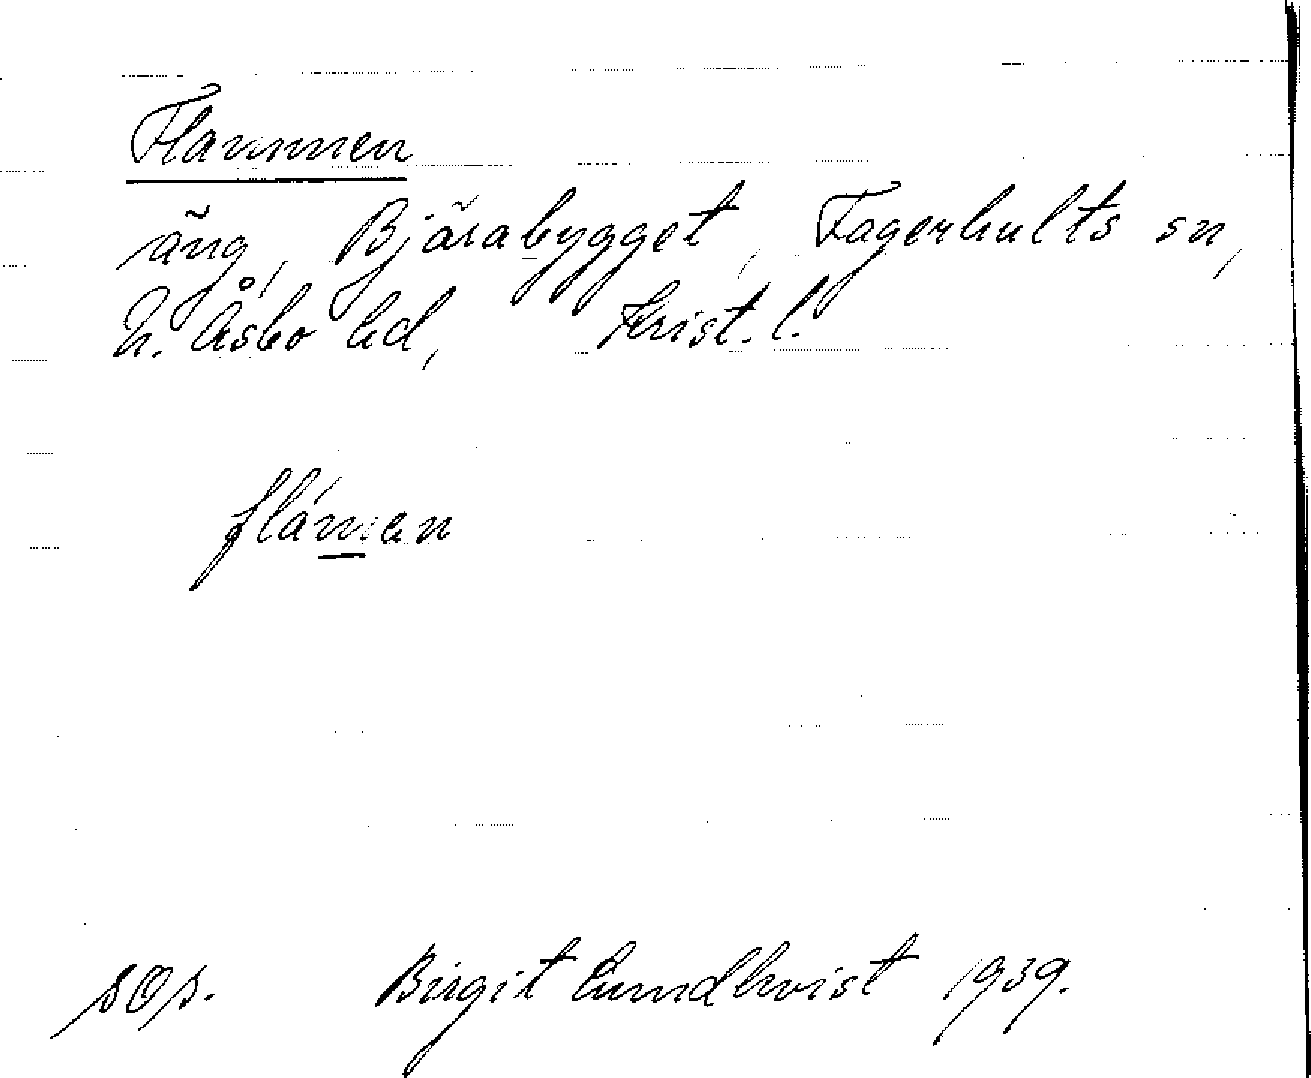 Flammen
äng, Bjärabygget, Fagerhults sn,
N. Åsbo hd, Krist. l.
flámen
sop. Birgit Lundkvist 1939.